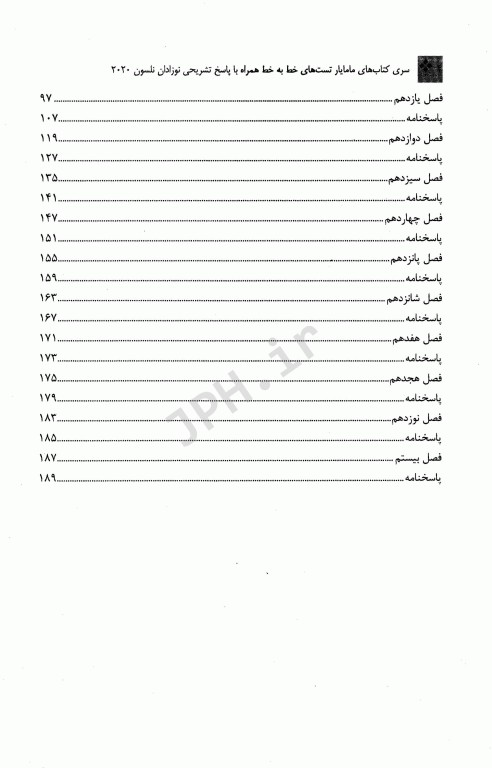 سری کتاب‌های مامایار تست‌های خط به خط همراه با پاسخ تشریحی نوزادان نلسون ۲۰۲۰
فصل یازدهم ........ ۹۷
پاسخنامه ........ ۱۰۷
فصل دوازدهم ........ ۱۱۹
پاسخنامه ........ ۱۲۷
فصل سیزدهم ........ ۱۳۵
پاسخنامه ........ ۱۴۱
فصل چهاردهم ........ ۱۴۷
پاسخنامه ........ ۱۵۱
فصل پانزدهم ........ ۱۵۵
پاسخنامه ........ ۱۵۹
فصل شانزدهم ........ ۱۶۳
پاسخنامه ........ ۱۶۷
فصل هفدهم ........ ۱۷۱
پاسخنامه ........ ۱۷۳
فصل هجدهم ........ ۱۷۵
پاسخنامه ........ ۱۷۹
فصل نوزدهم ........ ۱۸۳
پاسخنامه ........ ۱۸۵
فصل بیستم ........ ۱۸۷
پاسخنامه ........ ۱۸۹
JPH.ir